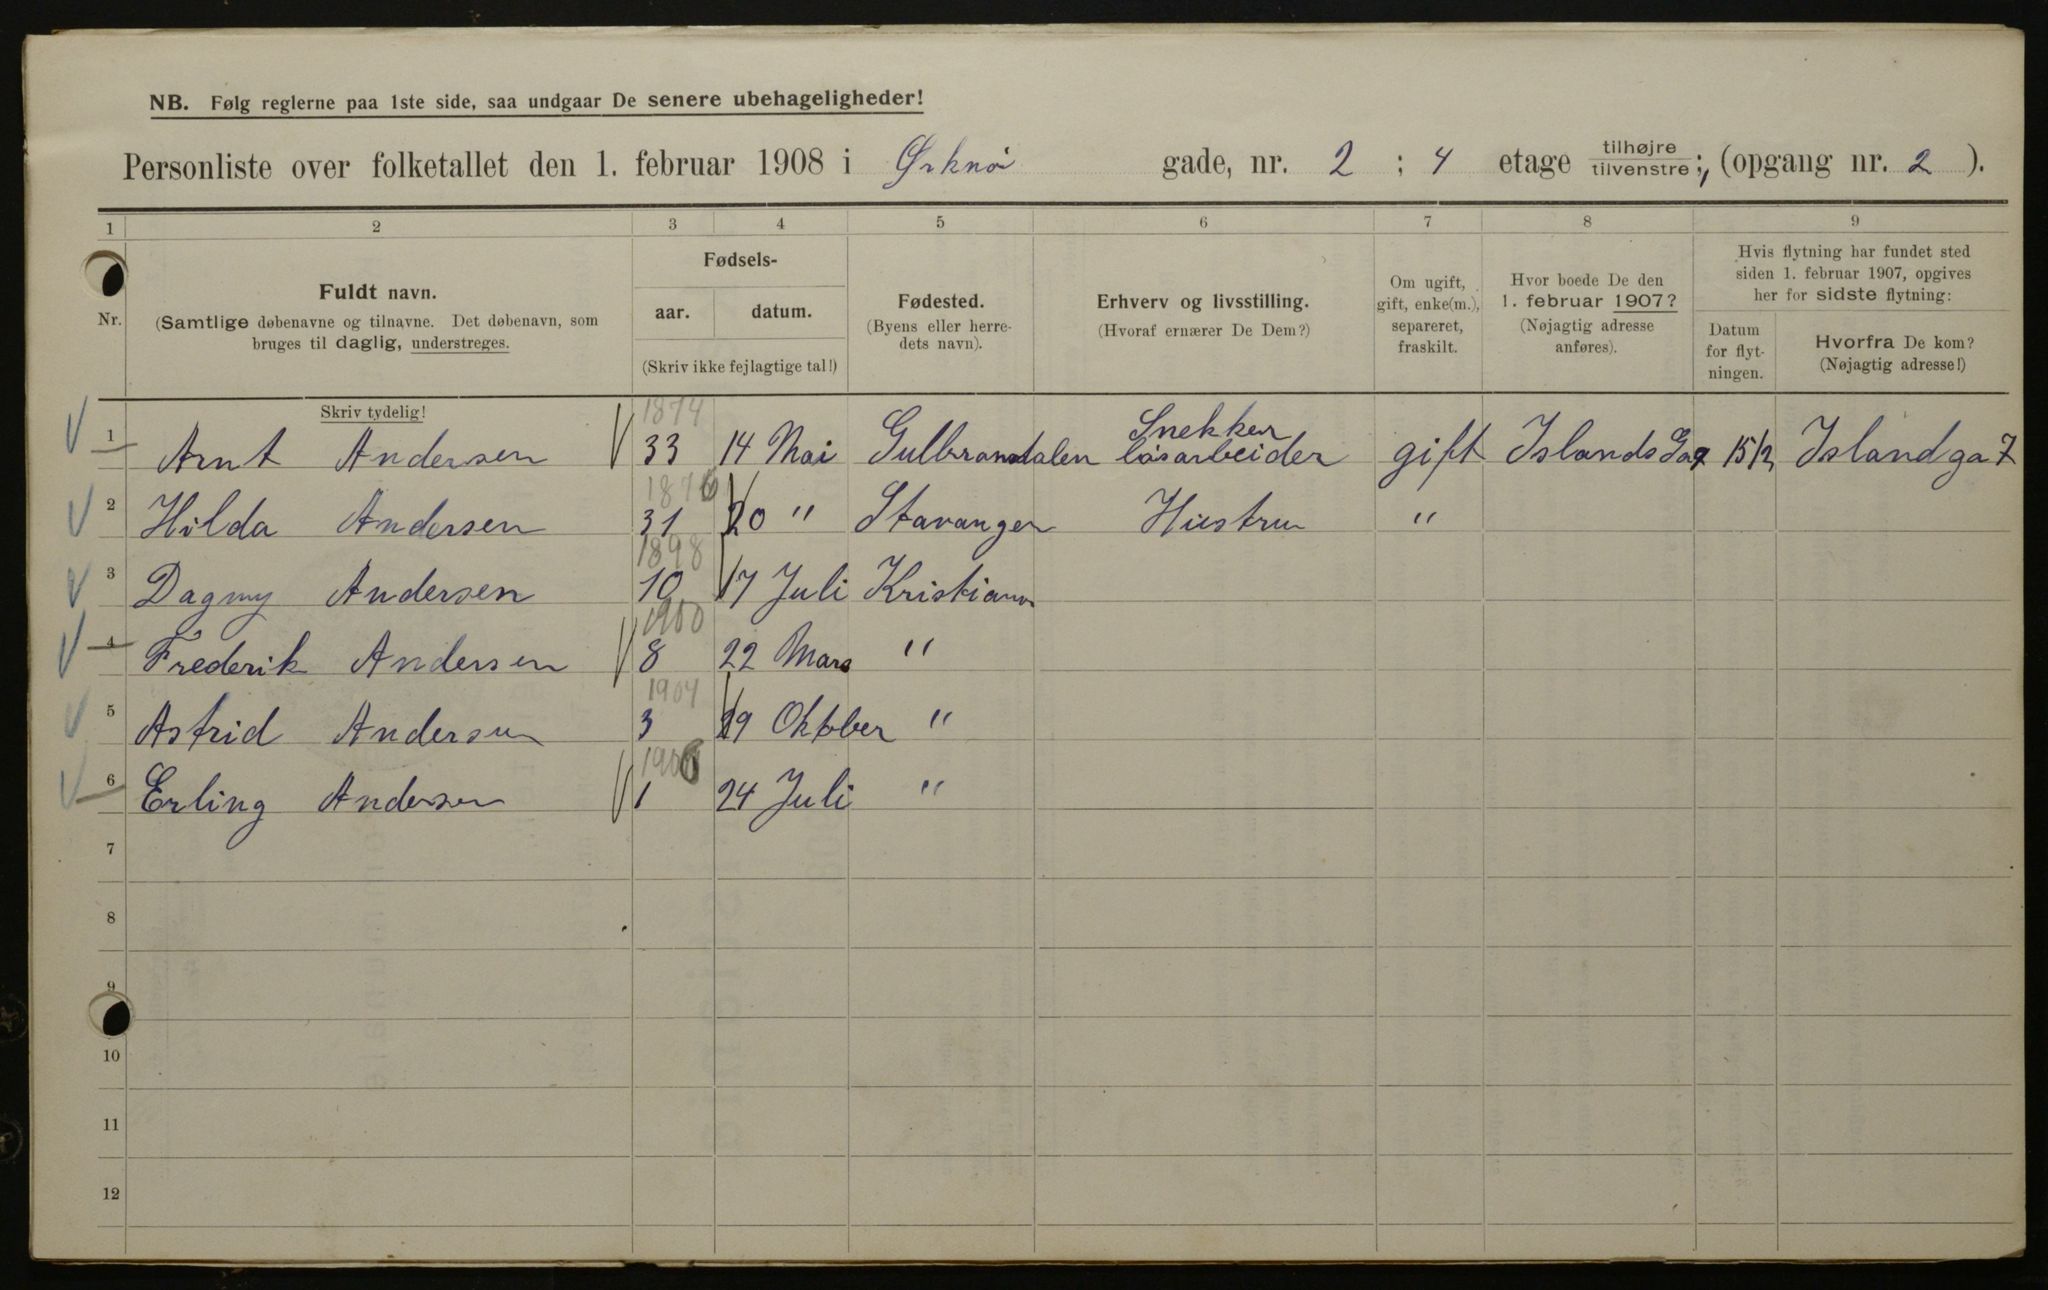 NB. Følg reglerne paa 1ste side, saa undgaar De senere ubehageligheder!
Personliste over folketallet den 1. februar 1908 i Ørknø gade, nr. 2 ; 4 etage tilhøjre/tilvenstre ;, (opgang nr. 2 ).
1 2 3 4 5 6 7 8 9
Nr.
Fuldt navn.
(Samtlige døbenavne og tilnavne. Det døbenavn, som
bruges til daglig, understreges.
Skriv tydelig!
Fødsels-
aar. datum.
(Skriv ikke fejlagtige tal!)
Fødested.
(Byens eller herre-
dets navn).
Erhverv og livsstilling.
(Hvoraf ernærer De Dem?)
Om ugift,
gift, enke(m.),
separeret,
fraskilt.
Hvor boede De den
1. februar 1907?
(Nøjagtig adresse
anføres).
Hvis flytning har fundet sted
siden 1. februar 1907, opgives
her for sidste flytning:
Datum
for flyt-
ningen.
Hvorfra De kom?
(Nøjagtig adresse!)
1874 Snekker
1 Arnt Andersen 33 14 Mai Gulbransdalen løsarbeider gift Islands Ga 7 15/2 Islandga 7
1876
2 Hilda Andersen 31 20 " Stavanger Hustru "
1898
3 Dagmy Andersen 10 17 Juli Kristiania
1900
4 Frederik Andersen 8 22 Mars "
1904
5 Astrid Andersen 3 29 Oktober "
1906
6 Erling Andersen 1 24 Juli "
7
8
9
10
11
12